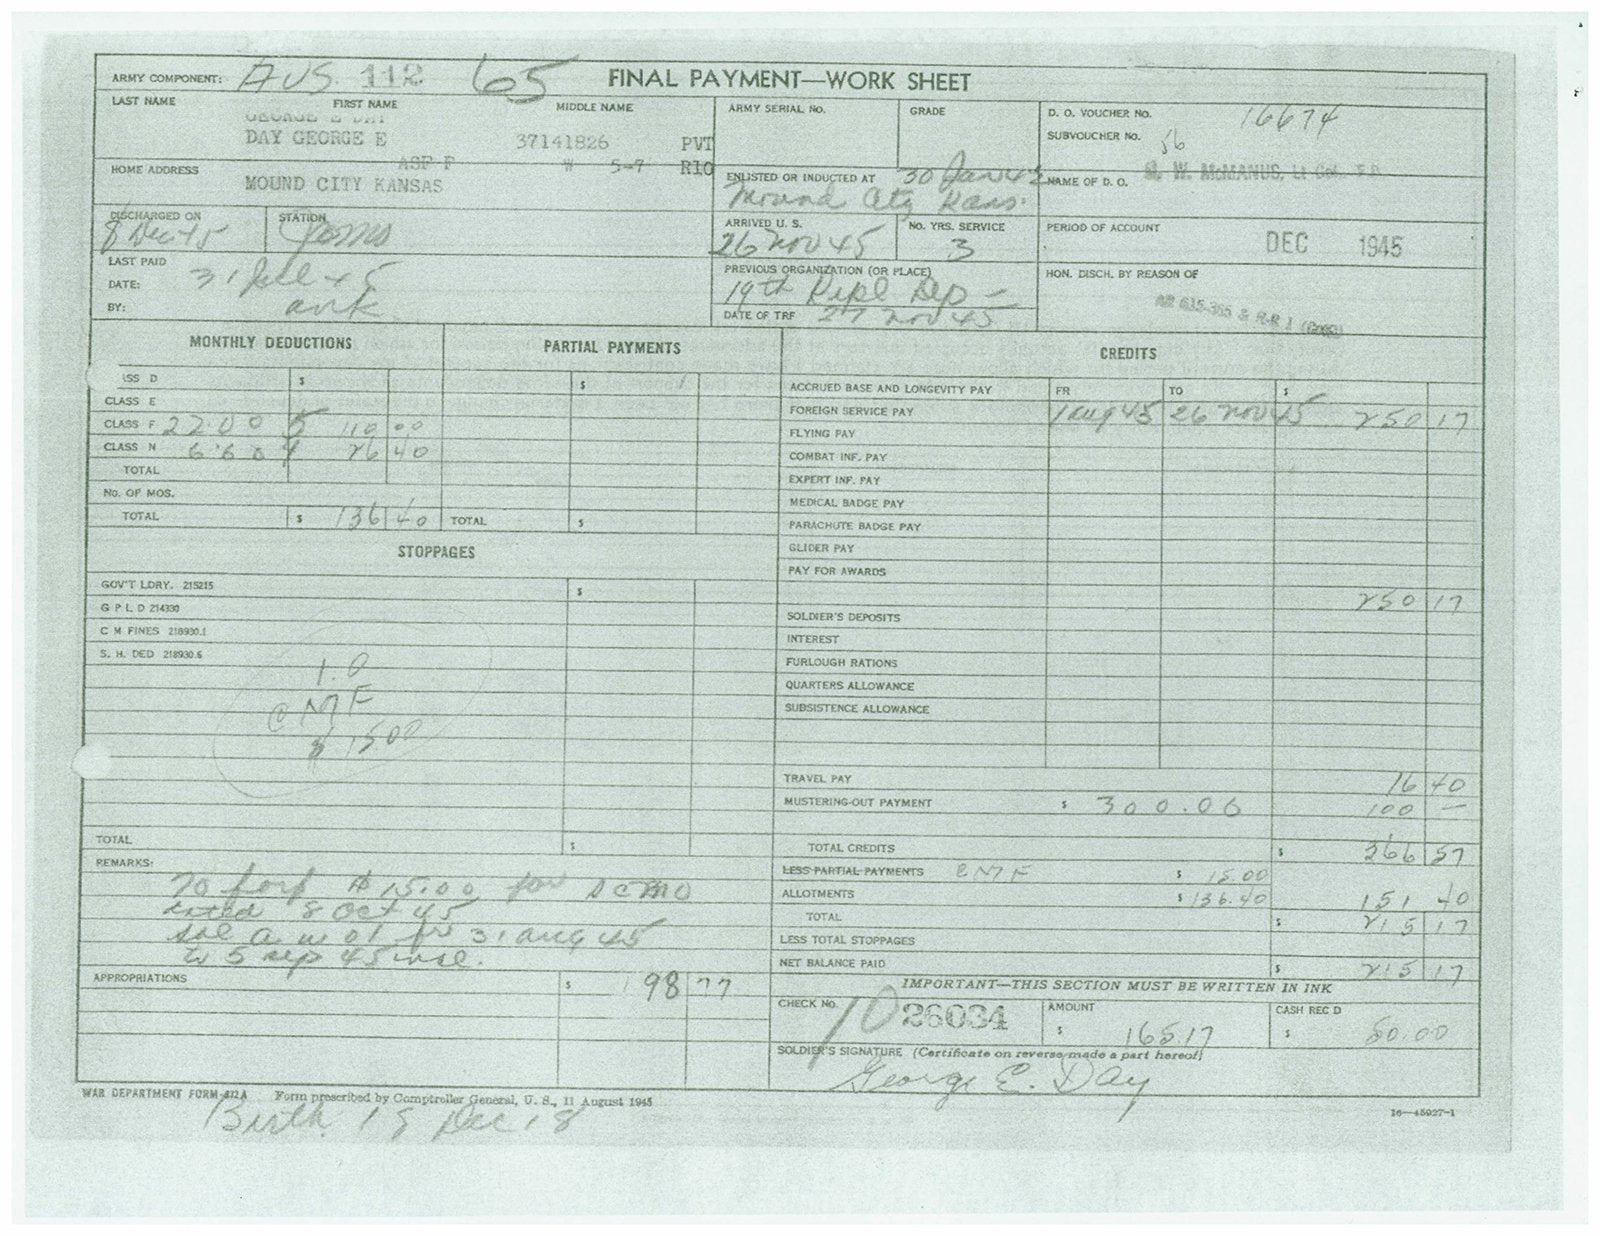 ARMY COMPONENT: AUS. 112 65 FINAL PAYMENT—WORK SHEET
LAST NAME FIRST NAME MIDDLE NAME ARMY SERIAL NO. GRADE D. O. VOUCHER NO. 16674
GEORGE E DAY SUBVOUCHER NO. 56
DAY GEORGE E 37141826 PVT
ASF F W 5-7 R10
HOME ADDRESS MOUND CITY KANSAS
ENLISTED OR INDUCTED AT 30 Jan 42
Mound City Kans.
NAME OF D. O. W. McMANUS, Lt Col. F.D.
DISCHARGED ON STATION ARRIVED U. S. NO. YRS. SERVICE PERIOD OF ACCOUNT DEC 1945
8 Dec 45 26 Nov 45 3
LAST PAID PREVIOUS ORGANIZATION (OR PLACE) HON. DISCH. BY REASON OF
DATE: 31 Jul 45 19th Repl Dep — AR 615-365 & R-R 1
BY: DATE OF TRF 27 Nov 45
MONTHLY DEDUCTIONS PARTIAL PAYMENTS CREDITS
ASS D $ $ ACCRUED BASE AND LONGEVITY PAY FR TO $
CLASS E FOREIGN SERVICE PAY 1 Aug 45 26 Nov 45 250 17
CLASS F 22.00 5 110 00 FLYING PAY
CLASS N 6.60 4 26 40 COMBAT INF. PAY
TOTAL EXPERT INF. PAY
NO. OF MOS. MEDICAL BADGE PAY
TOTAL $ 136 40 TOTAL $ PARACHUTE BADGE PAY
STOPPAGES GLIDER PAY
PAY FOR AWARDS
GOV'T LDRY. 215215 $
G P L D 214330 250 17
C M FINES 218930.1 SOLDIER'S DEPOSITS
S. H. DED 218930.6 INTEREST
1.0 FURLOUGH RATIONS
CMF QUARTERS ALLOWANCE
$ 1500 SUBSISTENCE ALLOWANCE
TRAVEL PAY 16 40
MUSTERING-OUT PAYMENT $ 300.00 100 —
TOTAL $ TOTAL CREDITS $ 366 57
REMARKS: LESS PARTIAL PAYMENTS CMF $ 15.00
To forf $15.00 for SCMO ALLOTMENTS $ 136.40 151 40
dated 8 Oct 45 TOTAL $ 215 17
Sol awol fr 31 Aug 45 LESS TOTAL STOPPAGES
to 5 Sep 45 incl. NET BALANCE PAID $ 215 17
APPROPRIATIONS $ 198 77 IMPORTANT—THIS SECTION MUST BE WRITTEN IN INK
CHECK NO. 10 26034 AMOUNT $ 165.17 CASH REC D $ 50.00
SOLDIER'S SIGNATURE (Certificate on reverse made a part hereof)
George E. Day
WAR DEPARTMENT FORM 372A Form prescribed by Comptroller General, U. S., 11 August 1945 16—45927-1
Birth 18 Dec 18